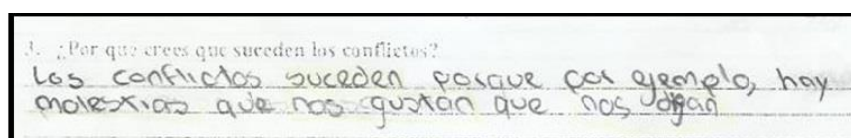 3. ¿Por que crees que suceden los conflictos?
Los conflictos suceden porque por ejemplo, hay
molestias que nos gustan que nos digan